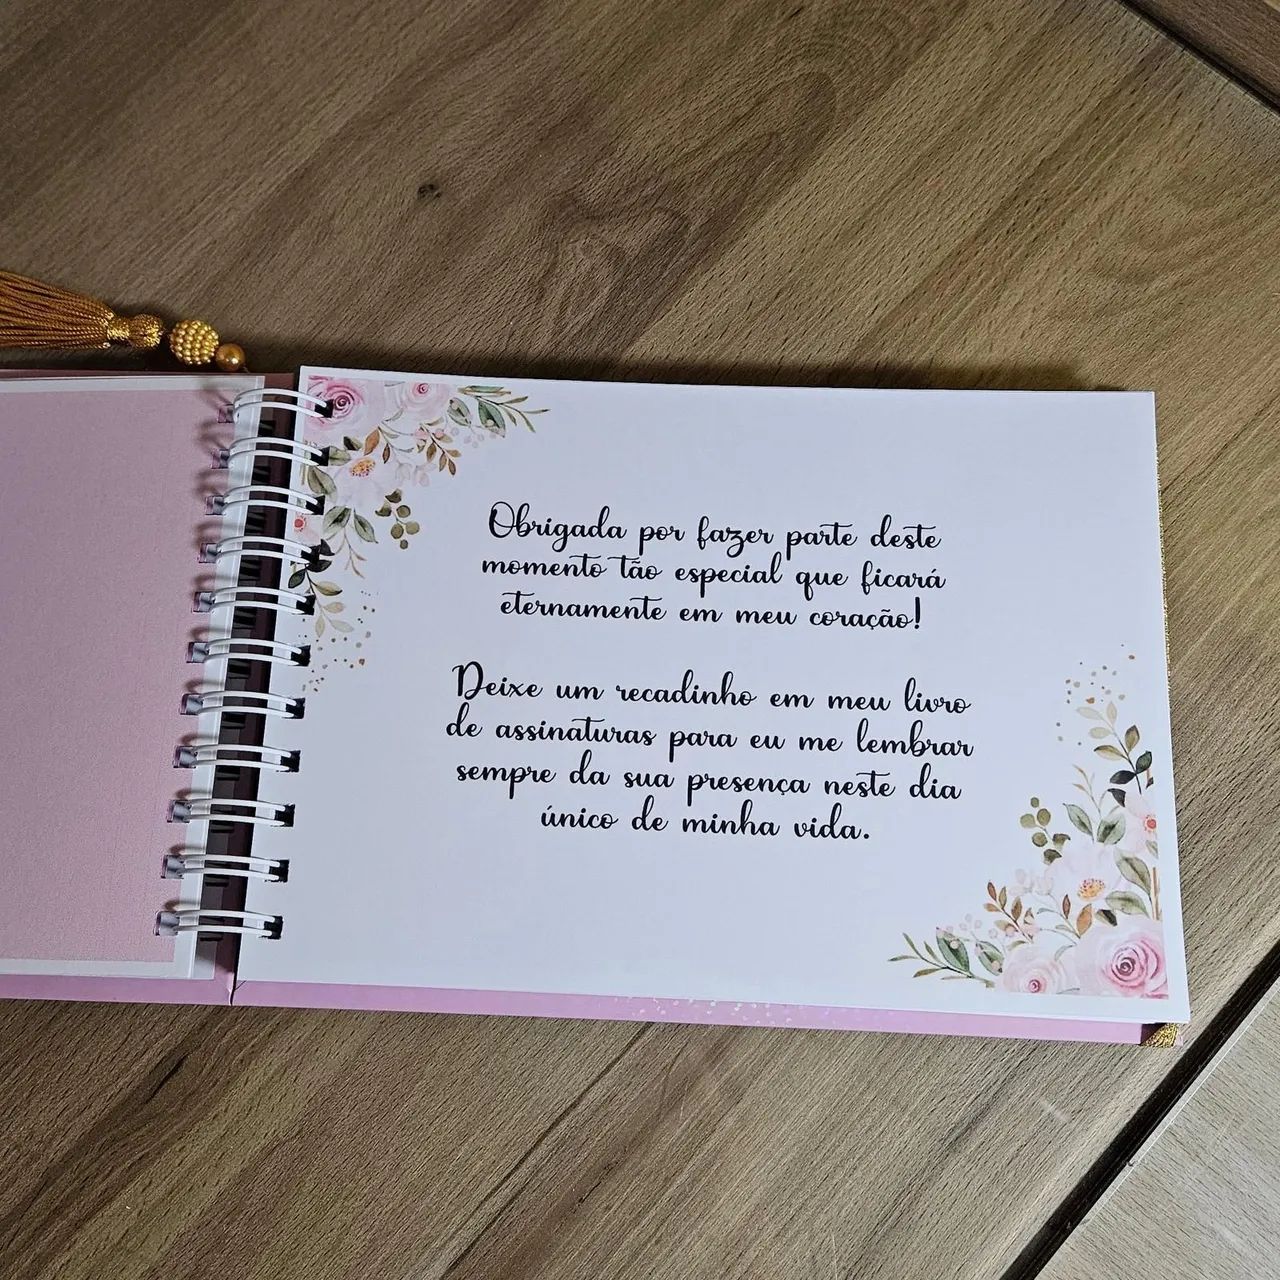 Obrigada por fazer parte deste
momento tão especial que ficará
eternamente em meu coração!
Deixe um recadinho em meu livro
de assinaturas para eu me lembrar
sempre da sua presença neste dia
único de minha vida.